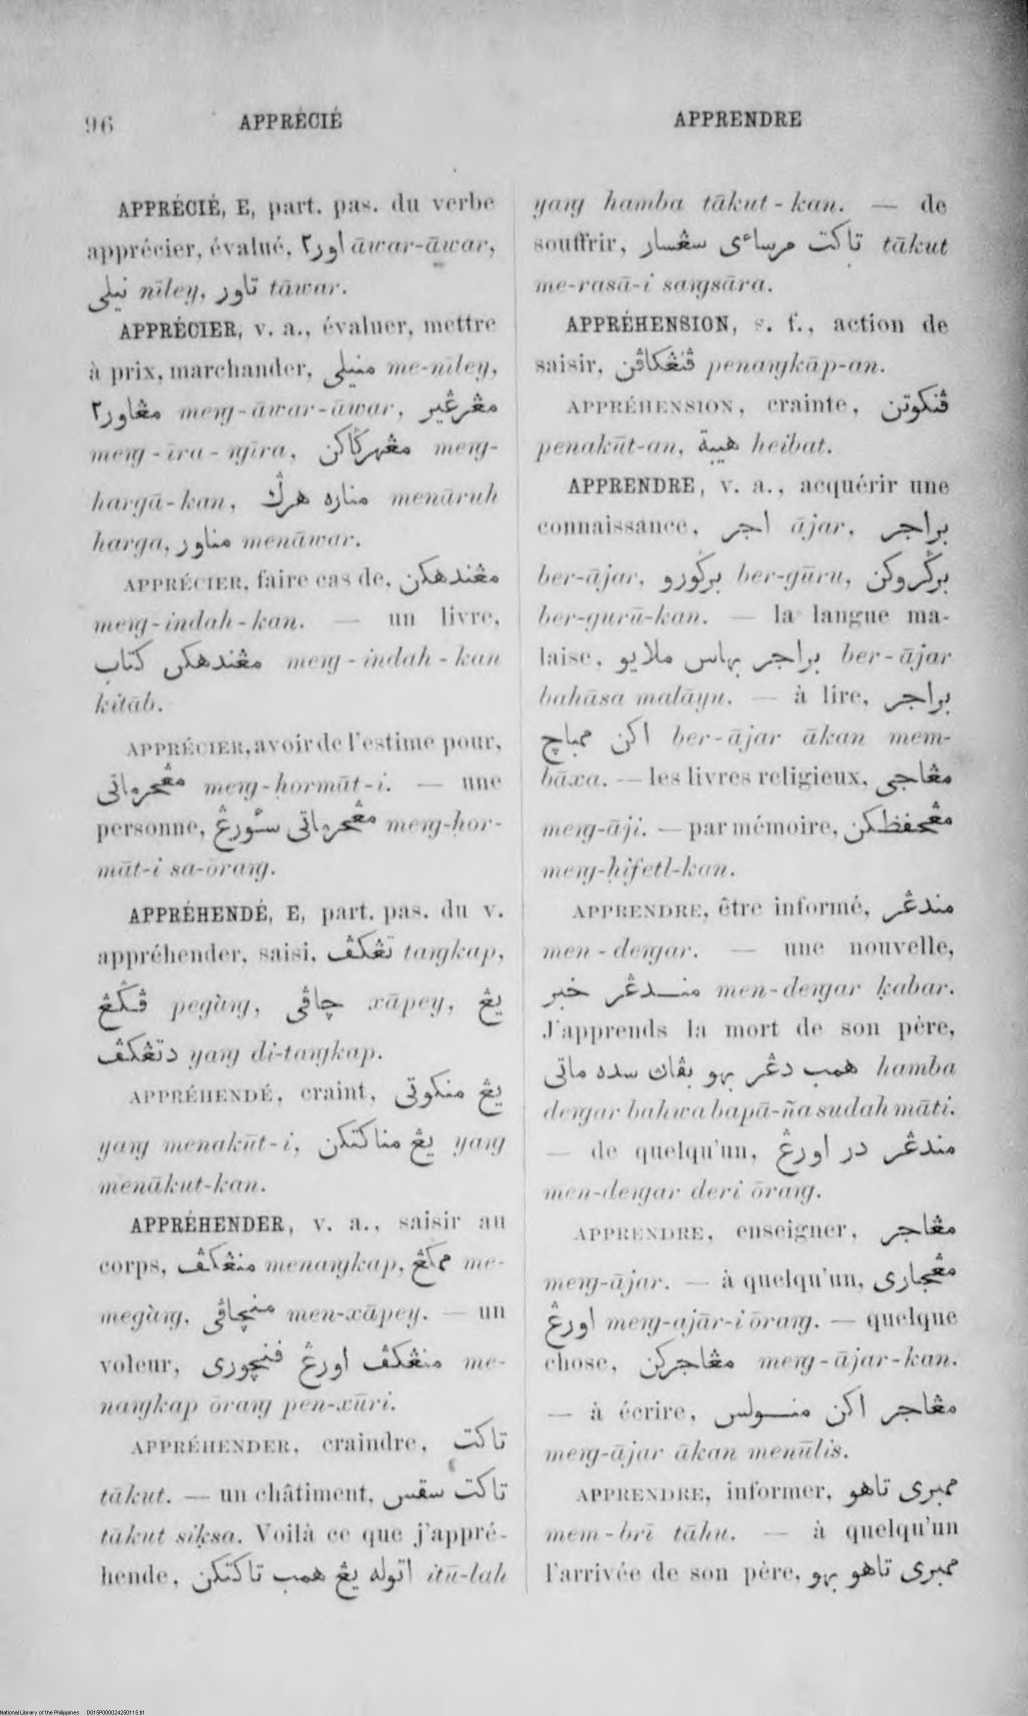 96
APPRÉCIÉ
APPRENDRE
APPRÉCIÉ, E, part. pas. du verbe
apprécier, évalué, اور٢ āwar-āwar,
نيلي nīley, تاور tāwar.
APPRÉCIER, v. a., évaluer, mettre
à prix, marchander, منيلي me-nīley,
مڠاور٢ meng-āwar-āwar, مڠيرڠير
meng-īra-ngīra, مڠهرݢاكن meng-
hargā-kan, مناره هرݢ menāruh
harga, مناور menāwar.
APPRÉCIER, faire cas de, مڠندهكن
meng-indah-kan. — un livre,
مڠندهكن كتاب meng-indah-kan
kitāb.
APPRÉCIER, avoir de l'estime pour,
مڠحرماتي meng-ḥormāt-i. — une
personne, مڠحرماتي سٔورڠ meng-ḥor-
māt-i sa-ōrang.
APPRÉHENDÉ, E, part. pas. du v.
appréhender, saisi, تڠكڤ tangkap,
ڤݢڠ pegàng, چاڤي xāpey, يڠ
دتڠكڤ yang di-tangkap.
APPRÉHENDÉ, craint, يڠ منكوتي
yang menakūt-i, يڠ مناكتكن yang
menākut-kan.
APPRÉHENDER, v. a., saisir au
corps, منڠكڤ menangkap, ممݢڠ me-
megàng, منچاڤي men-xāpey. — un
voleur, منڠكڤ اورڠ ڤنچوري me-
nangkap ōrang pen-xūri.
APPRÉHENDER, craindre, تاكت
tākut. — un châtiment, تاكت سقس
tākut siḳsa. Voilà ce que j'appré-
hende, اتوله يڠ همب تاكتكن itū-lah
yang hamba tākut-kan. — de
souffrir, تاكت مرساءي سڠسار tākut
me-rasā-i sangsāra.
APPRÉHENSION, s. f., action de
saisir, ڤنڠكاڤن penangkāp-an.
APPRÉHENSION, crainte, ڤنكوتن
penakūt-an, هيبة heibat.
APPRENDRE, v. a., acquérir une
connaissance, اجر ājar, براجر
ber-ājar, برݢورو ber-gūru, برݢروكن
ber-gurū-kan. — la langue ma-
laise, براجر بهاس ملايو ber-ājar
bahāsa malāyu. — à lire, براجر
اكن ممباچ ber-ājar ākan mem-
bāxa. — les livres religieux, مڠاجي
meng-āji. — par mémoire, مڠحفظكن
meng-ḥifetl-kan.
APPRENDRE, être informé, مندڠر
men-dengar. — une nouvelle,
مندڠر خبر men-dengar ḳabar.
J'apprends la mort de son père,
همب دڠر بهو بڤاڽ سده ماتي hamba
dengar bahwa bapā-ña sudah māti.
— de quelqu'un, مندڠر در اورڠ
men-dengar deri ōrang.
APPRENDRE, enseigner, مڠاجر
meng-ājar. — à quelqu'un, مڠجاري
اورڠ meng-ajār-i ōrang. — quelque
chose, مڠاجركن meng-ājar-kan.
— à écrire, مڠاجر اكن منولس
meng-ājar ākan menūlis.
APPRENDRE, informer, ممبري تاهو
mem-brī tāhu. — à quelqu'un
l'arrivée de son père, ممبري تاهو بهو
National Library of the Philippines